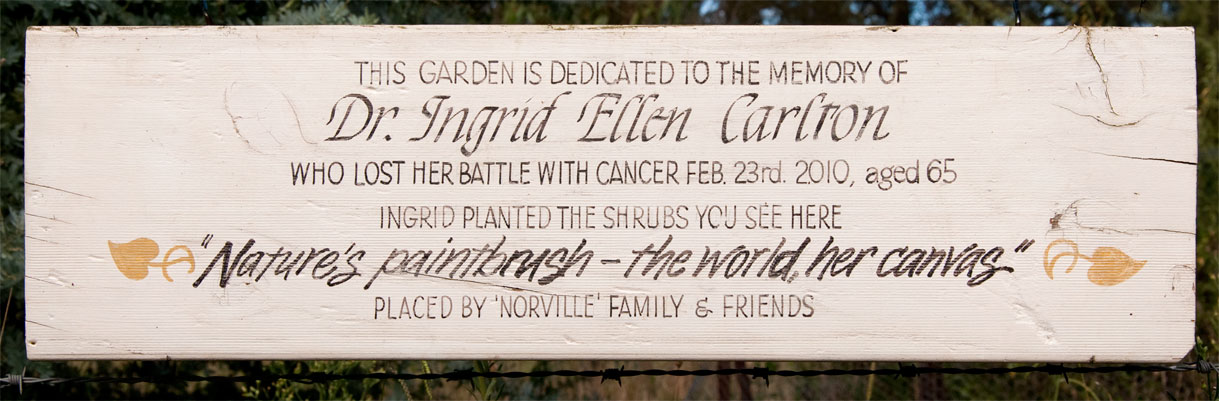 THIS GARDEN IS DEDICATED TO THE MEMORY OF
Dr. Ingrid Ellen Carlton
WHO LOST HER BATTLE WITH CANCER FEB. 23rd. 2010, aged 65
INGRID PLANTED THE SHRUBS YOU SEE HERE
"Nature's paintbrush – the world, her canvas."
PLACED BY 'NORVILLE' FAMILY & FRIENDS